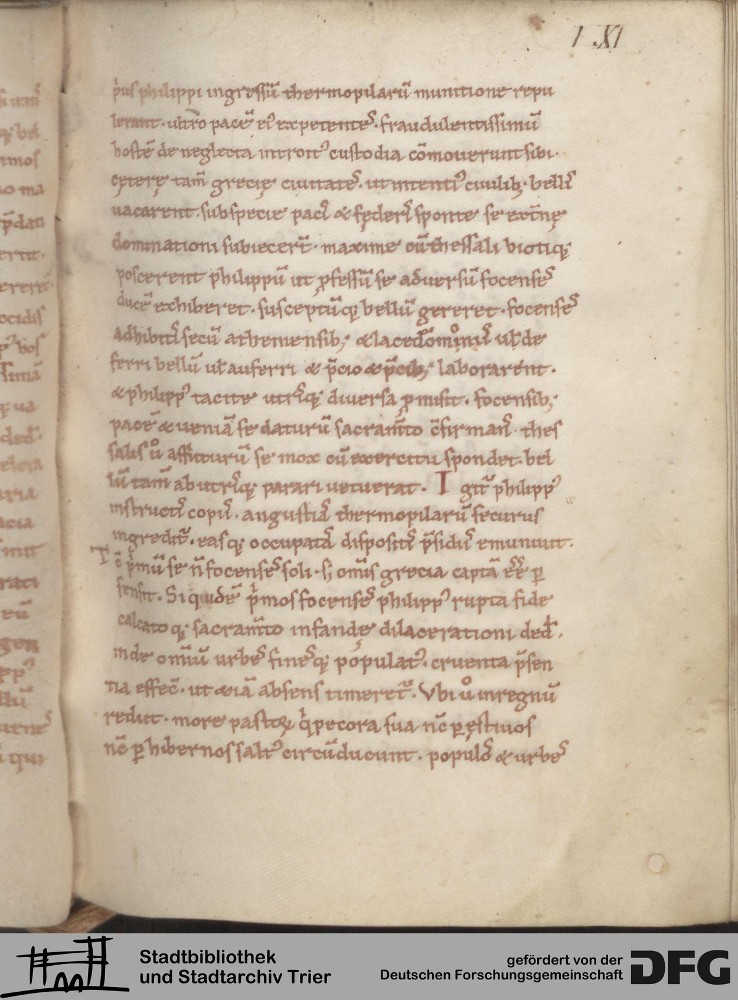 I XI
p̓us philippi ingressū thermopilarū munitione repu
lerant · ultro pacē ei᷒ expetentes · fraudulentissimū
hostē de neglecta introit᷒ custodia cōmouerunt sibi ·
cęterę tam̄ grecię ciuitates · ut intenti᷒ ciuilib; bellis
uacarent · sub specie pacis & fęderis sponte se extn̄ę
dominationi subiecer̄t · maxime cū thessali biotiq;
poscerent philippū ut p̱fessū se aduersū focenses
ducē exhiberet · susceptūq; bellū gereret · focenses
adhibitis secū atheniensib; & lacedōmoniis ul̄ de
ferri bellū ul̄ auferri & p̄cio & p̄cib; laborarent ·
& philipp᷒ tacite utrisq; diuersa p̱misit · focensib;
pacē & ueniā se daturū sacram̄to c̄firmans · thes
salis u̓o affuturū se mox cū exercitu spondet · bel
lū tam̄ ab utrisq; parari uetuerat · Igit̄ philipp᷒
instructis copiis · angustias thermopilarū securus
ingredit̄ · easq; occupatas dispositis p̄sidiis emuniuit ·
Tc̄ p̓mū se n̄ focenses soli · s; om̄is grecia captā eē̄ p̱
sensit · Siquidē p̓mos focenses philipp᷒ rupta fide
calcatoq; sacram̄to infandę dilacerationi ded̄ ·
inde om̄iū urbes finesq; populat᷒ · cruenta p̄sen
tia effec̄ · ut &iā absens timeret̄ · Vbi u̓o in regnū
rediit · more pastorꝝ q̓ pecora sua nc̄ p̱ ęstiuos
nc̄ p̱ hibernos salt᷒ circūducunt · populos & urbes
Stadtbibliothek
und Stadtarchiv Trier
gefördert von der
Deutschen Forschungsgemeinschaft
DFG